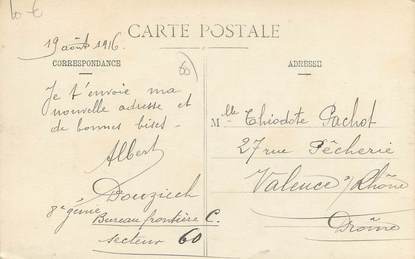 10 €
CARTE POSTALE
19 août 1916
CORRESPONDANCE
60
Je t'envoie ma
nouvelle adresse et
de bonnes bises -
Albert
Douziech
8e génie
Bureau frontière C.
secteur 60
ADRESSE
Mlle Thiodote Pachot
27 rue Pêcherie
Valence s/ Rhône
Drôme